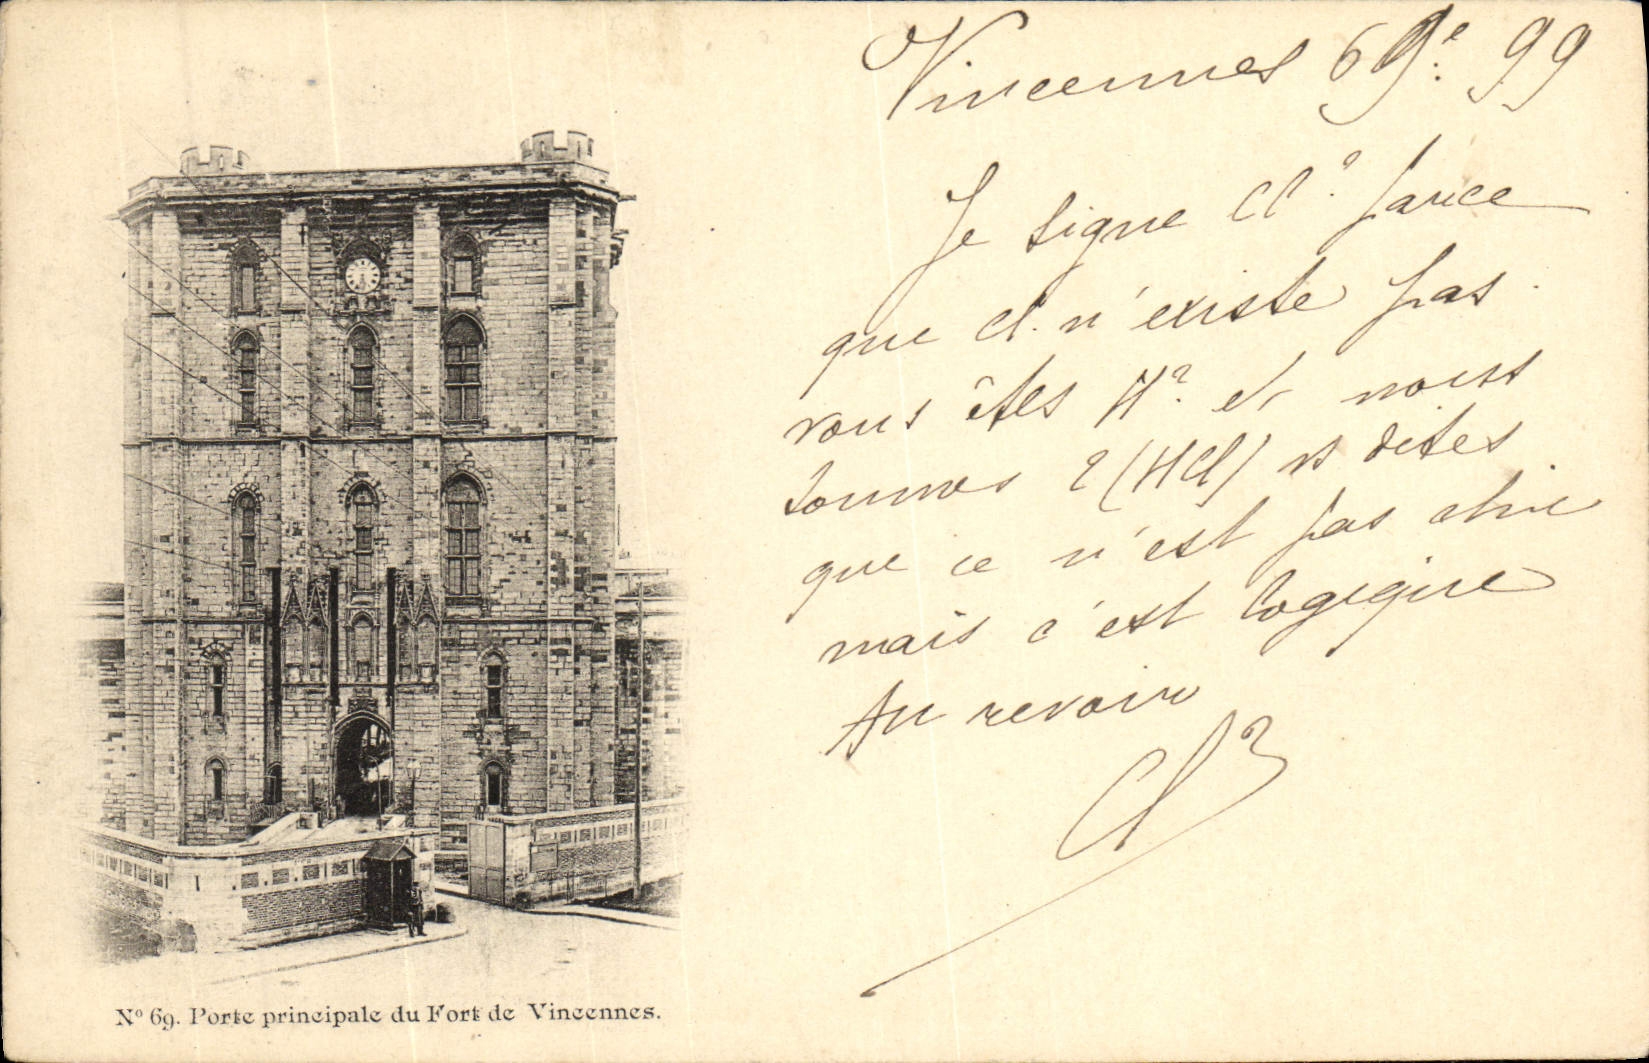 Vincennes 6 9e 99
Je signe Cl² parce
que Cl n'existe pas
vous êtes H² et nous
sommes 2 (HCl) vs dites
que ce n'est pas chic
mais c'est logique
Au revoir
Cl²
Nº 69. Porte principale du Fort de Vincennes.